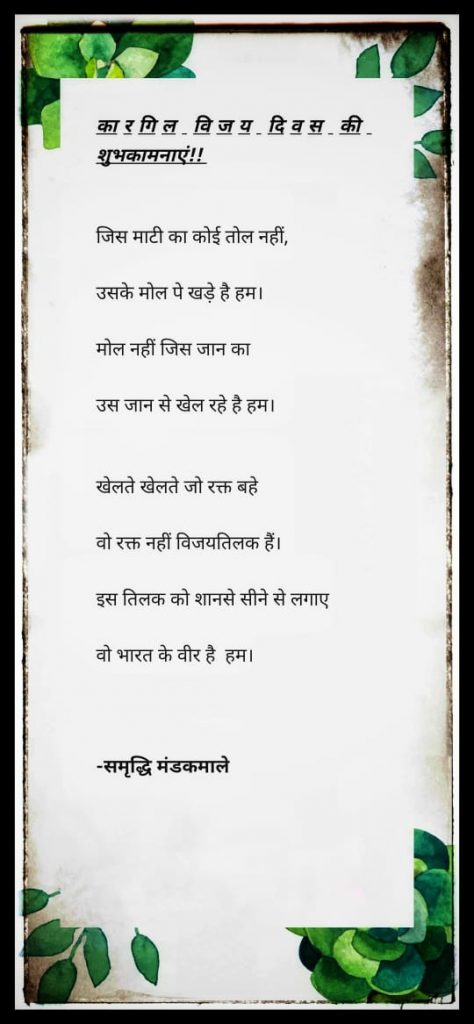 कारगिल विजय दिवस की
शुभकामनाएं!!
जिस माटी का कोई तोल नहीं,
उसके मोल पे खड़े है हम।
मोल नहीं जिस जान का
उस जान से खेल रहे है हम।
खेलते खेलते जो रक्त बहे
वो रक्त नहीं विजयतिलक हैं।
इस तिलक को शानसे सीने से लगाए
वो भारत के वीर है हम।
-समृद्धि मंडकमाले